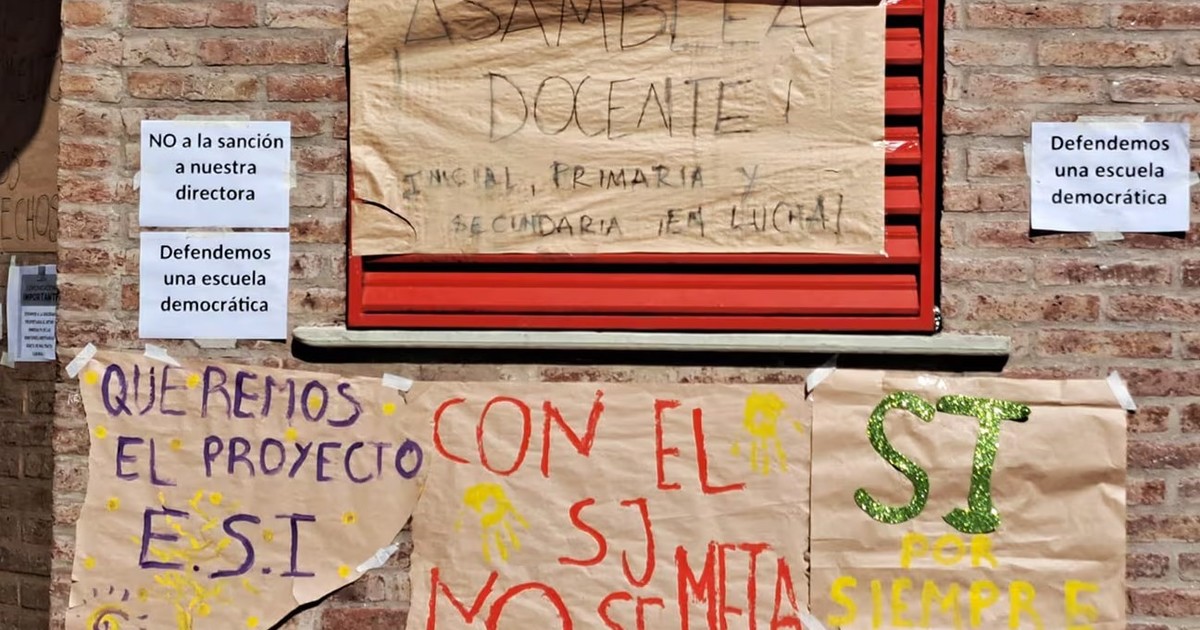 ASAMBLEA
DOCENTE!
INICIAL, PRIMARIA Y
SECUNDARIA ¡EN LUCHA!
NO a la sanción
a nuestra
directora
Defendemos
una escuela
democrática
Defendemos
una escuela
democrática
ECHOS
IMPORTANT
QUEREMOS
EL PROYECTO
E.S.I
CON EL
SJ
NO SE META
SI
POR
SIEMPRE